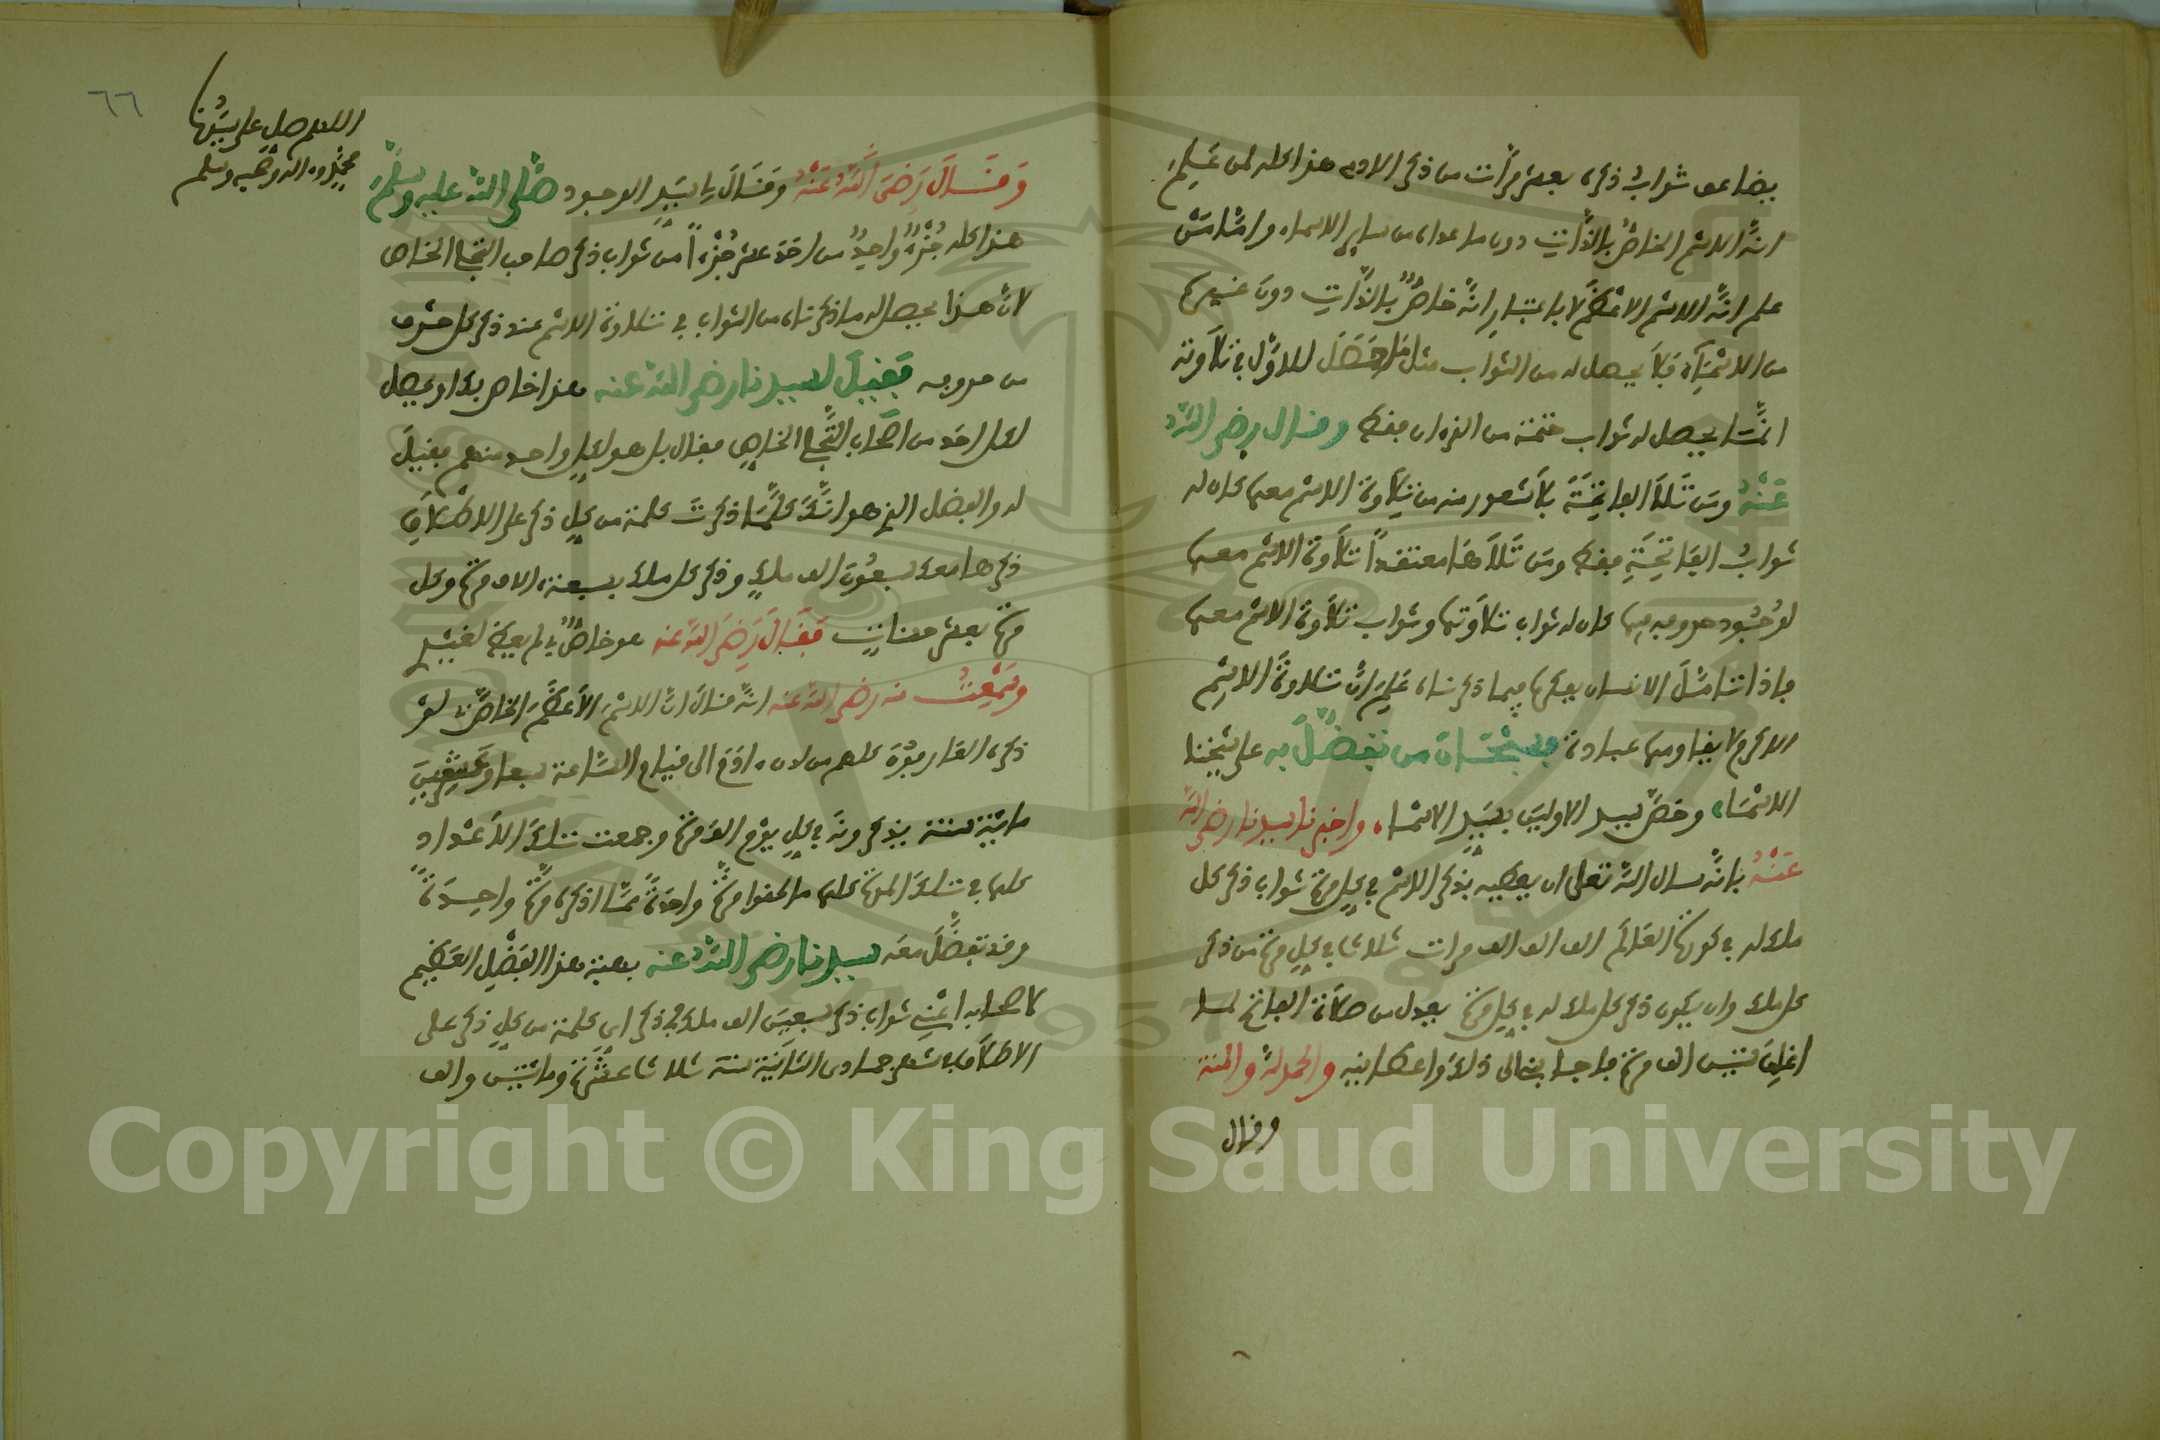 يضاعف ثواب ذكره بعشر مرات من ذكر الادم هذا كله لمن علم
انه الاسم الخاص بالذات دون ما عداه من ساير الاسماء واما من
علم انه الاسم الاعظم لا باعتبار انه خاص بالذات دون غيرها
من الاسماء فلا يحصل له من الثواب مثل ما حصل للاول في تلاوته
انما يحصل له ثواب ختمة من القران فقط وقال رضي الله
عنه ومن تلا الفاتحة بلا شعور منه من تلاوة الاسم معها كان له
ثواب الفاتحة فقط ومن تلاها معتقدا تلاوة الاسم معها
لوجود حروفه فيها كان له ثواب تلاوتها وثواب تلاوة الاسم معها
فاذا تامل الانسان بفكره فيما ذكرناه علم ان تلاوة الاسم
الاكرم لا يفاومها عبادة فسبحان من تفضل به على شيخنا
الاسماء وخص سيد الاولين بسيد الاسماء واخبرنا سيدنا رضي الله
عنه بانه سال الله تعلى ان يعطيه بذكر الاسم في كل مرة ثواب ذكر كل
ملك له في كورة العالم الف الف الف مرات ثلاثا في كل مرة من ذكر
كل ملك وان يكون ذكر كل ملك له في كل مرة يعدل من صلاة الفاتح لما
اغلق ستين الف مرة فاجابني الى ذلك واعطانيه والحمد لله والمنة
وقال
٦٦
اللهم صل على سيدنا
محمد واله وصحبه وسلم
وقال رضي الله عنه وقال لي سيد الوجود صلى الله عليه وسلم
هذا كله جزء واحد من احد عشر جزءا من ثواب ذكر صاحب التجلي الخاص
لان هذا يحصل له ما ذكرناه من الثواب في تلاوة الاسم عند ذكر كل حرف
من حروفه فقيل لسيدنا رضي الله عنه هذا خاص بك او يحصل
لكل احد من اصحاب التجلي الخاص فقال بل هو لكل واحد منهم فقيل
له والفضل الذي هو انك كلما ذكرت كلمة من كل ذكر على الاطلاق
ذكرها معك سبعون الف ملك وذكر كل ملك بسبعة الاف مرة وكل
مرة بعشر حسنات فقال رضي الله عنه هو خاص بي لم يعط لغيري
وسمعت منه رضي الله عنه انه قال ان الاسم الاعظم الخاص به لو
ذكره العارفون كلهم من لدن ادم الى قيام الساعة سبعا وعشرين
مائة سنة يذكرونه في كل يوم الف مرة وجمعت تلك الاعداد
كلها في تلك المرة كلها ما لحقوا مرة واحدة مما اذكره مرة واحدة
وقد تفضل معه سيدنا رضي الله عنه بهبة هذا الفضل العظيم
لاصحابه اعني ثواب ذكر سبعين الف ملك في ذكر اي كلمة من كل ذكر على
الاطلاق في شهر جمادى الثانية سنة ثلاث عشرة ومائتين والف
Copyright © King Saud University
1957